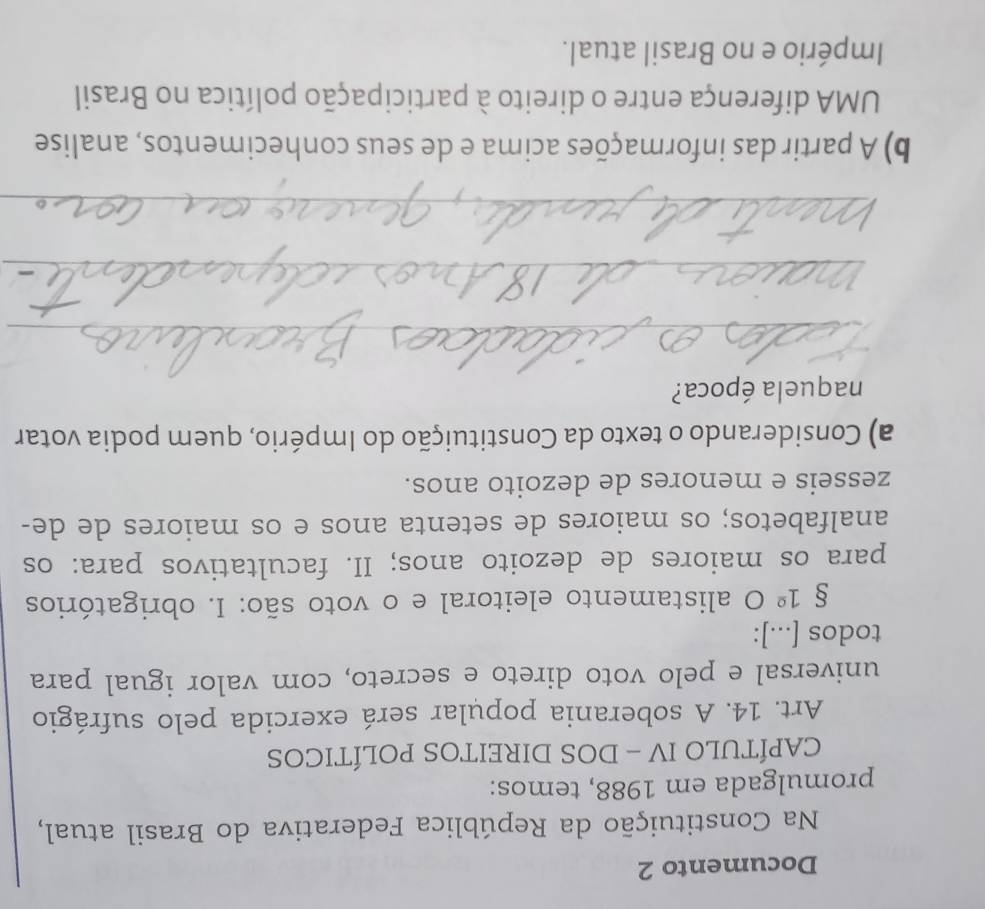 Documento 2
Na Constituição da República Federativa do Brasil atual,
promulgada em 1988, temos:
CAPÍTULO IV – DOS DIREITOS POLÍTICOS
Art. 14. A soberania popular será exercida pelo sufrágio
universal e pelo voto direto e secreto, com valor igual para
todos [...]:
§ 1º O alistamento eleitoral e o voto são: I. obrigatórios
para os maiores de dezoito anos; II. facultativos para: os
analfabetos; os maiores de setenta anos e os maiores de de-
zesseis e menores de dezoito anos.
a) Considerando o texto da Constituição do Império, quem podia votar
naquela época?
Todos os cidadaos Brasileiros
maiores de 18 Anos
mente de renda, genero ou cor.
b) A partir das informações acima e de seus conhecimentos, analise
UMA diferença entre o direito à participação política no Brasil
Império e no Brasil atual.